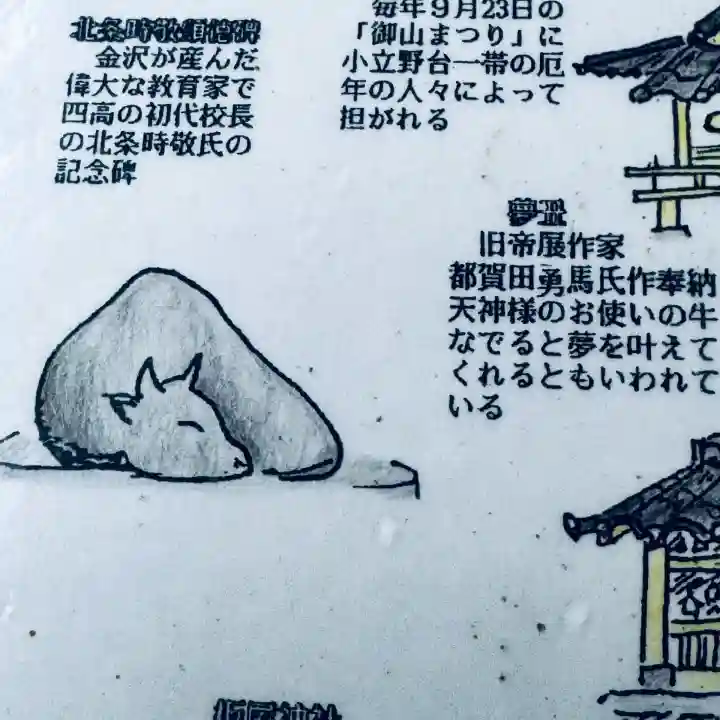 北条時敬頌徳碑
金沢が産んだ
偉大な教育家で
四高の初代校長
の北条時敬氏の
記念碑
毎年９月23日の
「御山まつり」に
小立野台一帯の厄
年の人々によって
担がれる
夢牛
旧帝展作家
都賀田勇馬氏作奉納
天神様のお使いの牛
なでると夢を叶えて
くれるともいわれて
いる